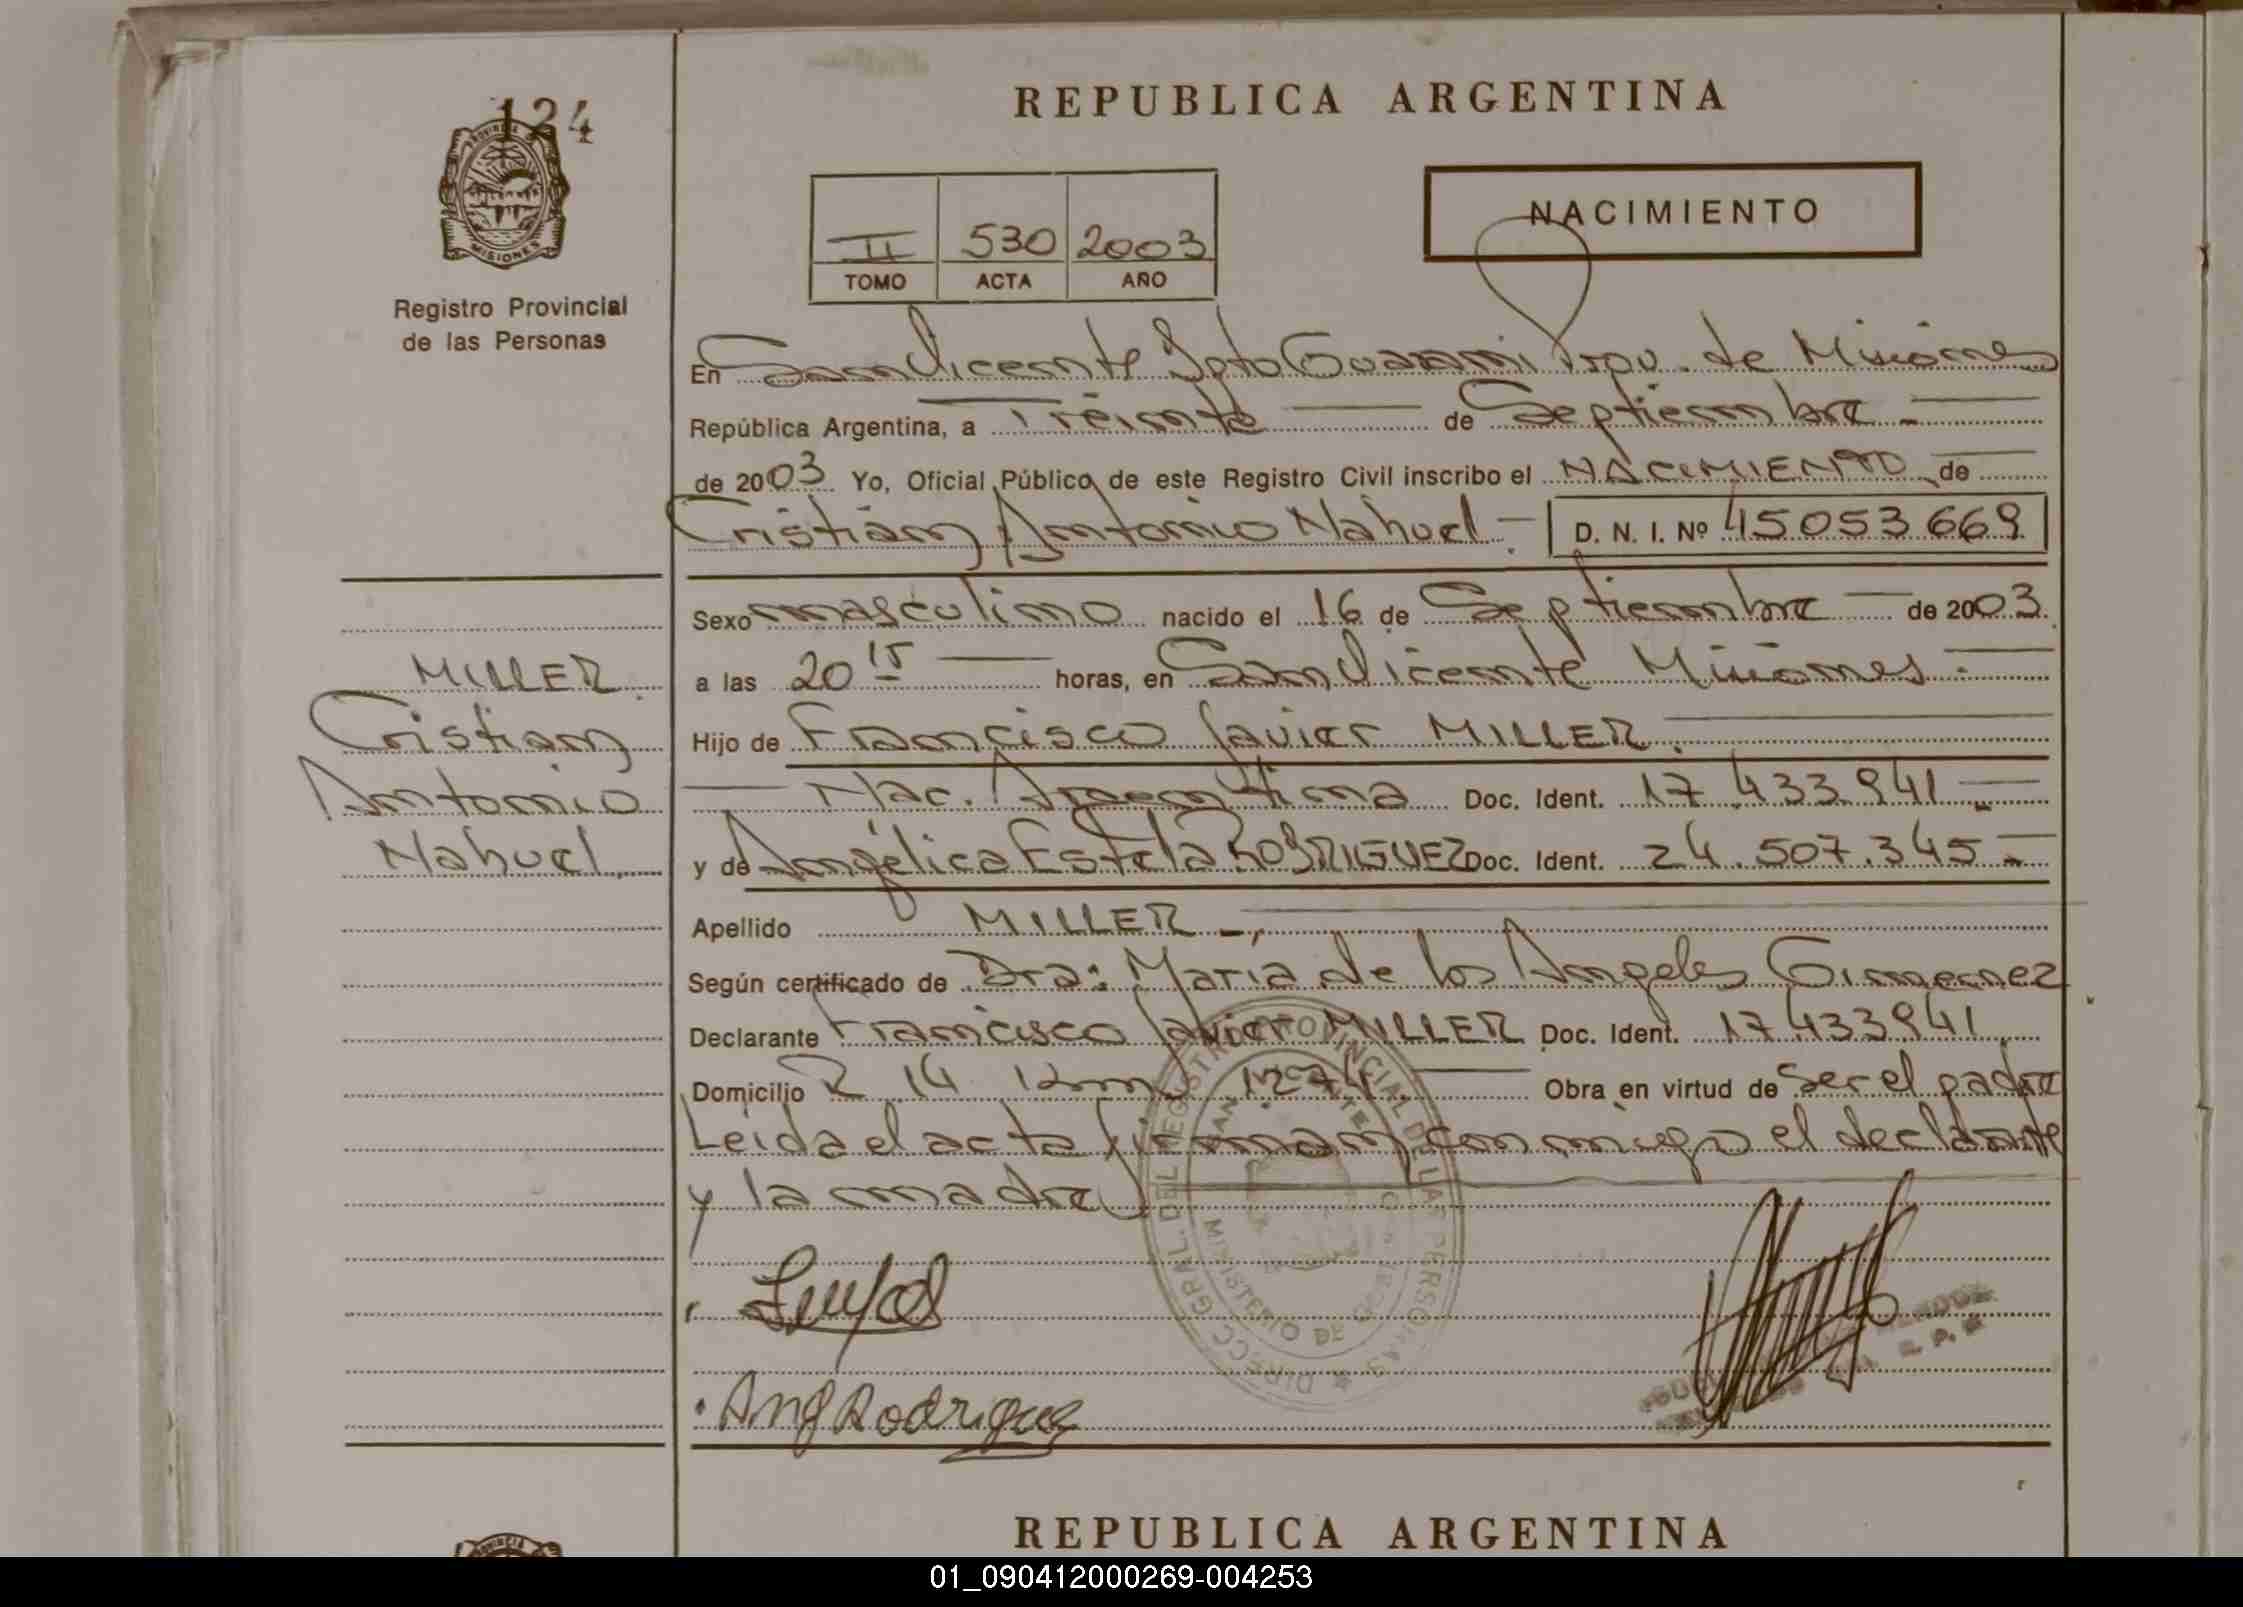 124
PROVINCIA DE
MISIONES
Registro Provincial
de las Personas
REPUBLICA ARGENTINA
II 530 2003
TOMO ACTA AÑO
NACIMIENTO
En San Vicente Dpto Guarani Prov. de Misiones
República Argentina, a Treinta de Septiembre
de 2003 Yo, Oficial Público de este Registro Civil inscribo el NACIMIENTO de
Cristian Antonio Nahuel D. N. I. Nº 45053669
Sexo masculino nacido el 16 de Septiembre de 2003.
a las 20 15 horas, en San Vicente Misiones.
Hijo de Francisco Javier MILLER.
Nac. Argentina Doc. Ident. 17.433.941
y de Angélica Estela RODRIGUEZ Doc. Ident. 24.507.345
Apellido MILLER
Según certificado de Dra: Maria de los Angeles Gimenez
Declarante Francisco Javier MILLER Doc. Ident. 17433941
Domicilio R 14 Km 1274 Obra en virtud de ser el padre
Leida el acta firman conmigo el declarante
y la madre
MILLER
Cristian
Antonio
Nahuel
DIRECC. GRAL. DEL REGISTRO PROVINCIAL DE LAS PERSONAS
MINISTERIO DE
Ang Rodriguez
REPUBLICA ARGENTINA
PROVINCIA
01_090412000269-004253